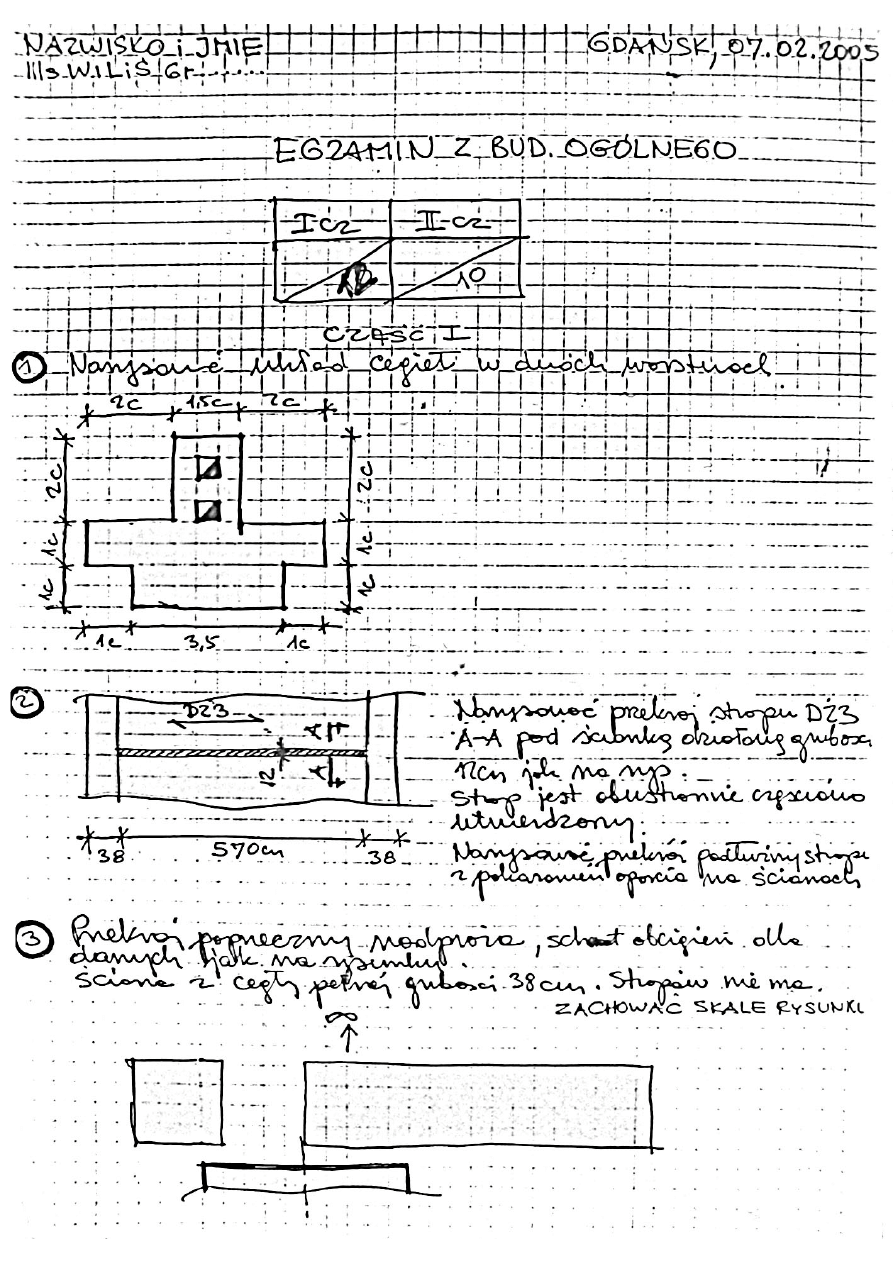 NAZWISKO i IMIĘ
GDAŃSK, 07.02.2005
III s. W.I.L.i.Ś. Gr.......
EGZAMIN Z BUD. OGÓLNEGO
I cz II cz
10
CZĘŚĆ I
1 Narysować układ cegieł w dwóch warstwach
2c 1,5c 2c
2c 2c
1c 1c
1c 1c
1c 3,5 1c
2
DZ3
A
A
12
38 570cm 38
Narysować przekrój stropu DZ3
A-A pod ścianką działową grubości
12cm jak na rys.
Strop jest obustronnie częściowo
utwierdzony.
Narysować przekrój podłużny stropu
z pokazaniem oparcia na ścianach
3 Przekrój poprzeczny nadproża, schemat obciążeń dla
danych jak na rysunku.
Ściana z cegły pełnej grubości 38cm. Stropów nie ma.
ZACHOWAĆ SKALE RYSUNKU
∞